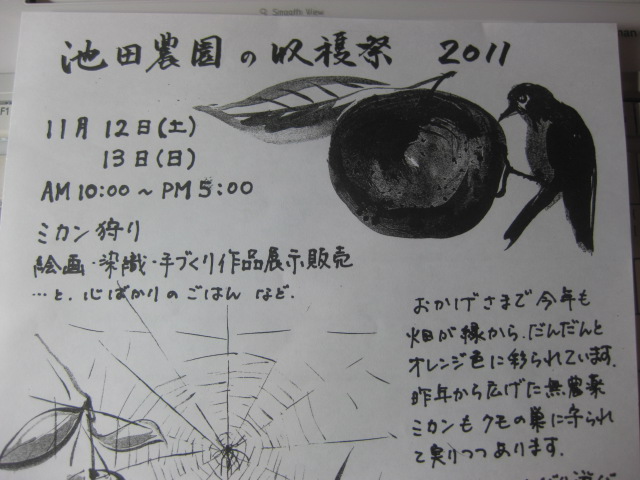 Smooth View
池田農園の収穫祭 2011
11月12日(土)
13日(日)
AM 10:00 ~ PM 5:00
ミカン狩り
絵画・染織・手づくり作品展示販売
…と、心ばかりのごはん など.
おかげさまで今年も
畑が緑から、だんだんと
オレンジ色に彩られています.
昨年から広げた無農薬
ミカンもクモの巣に守られ
て実りつつあります.